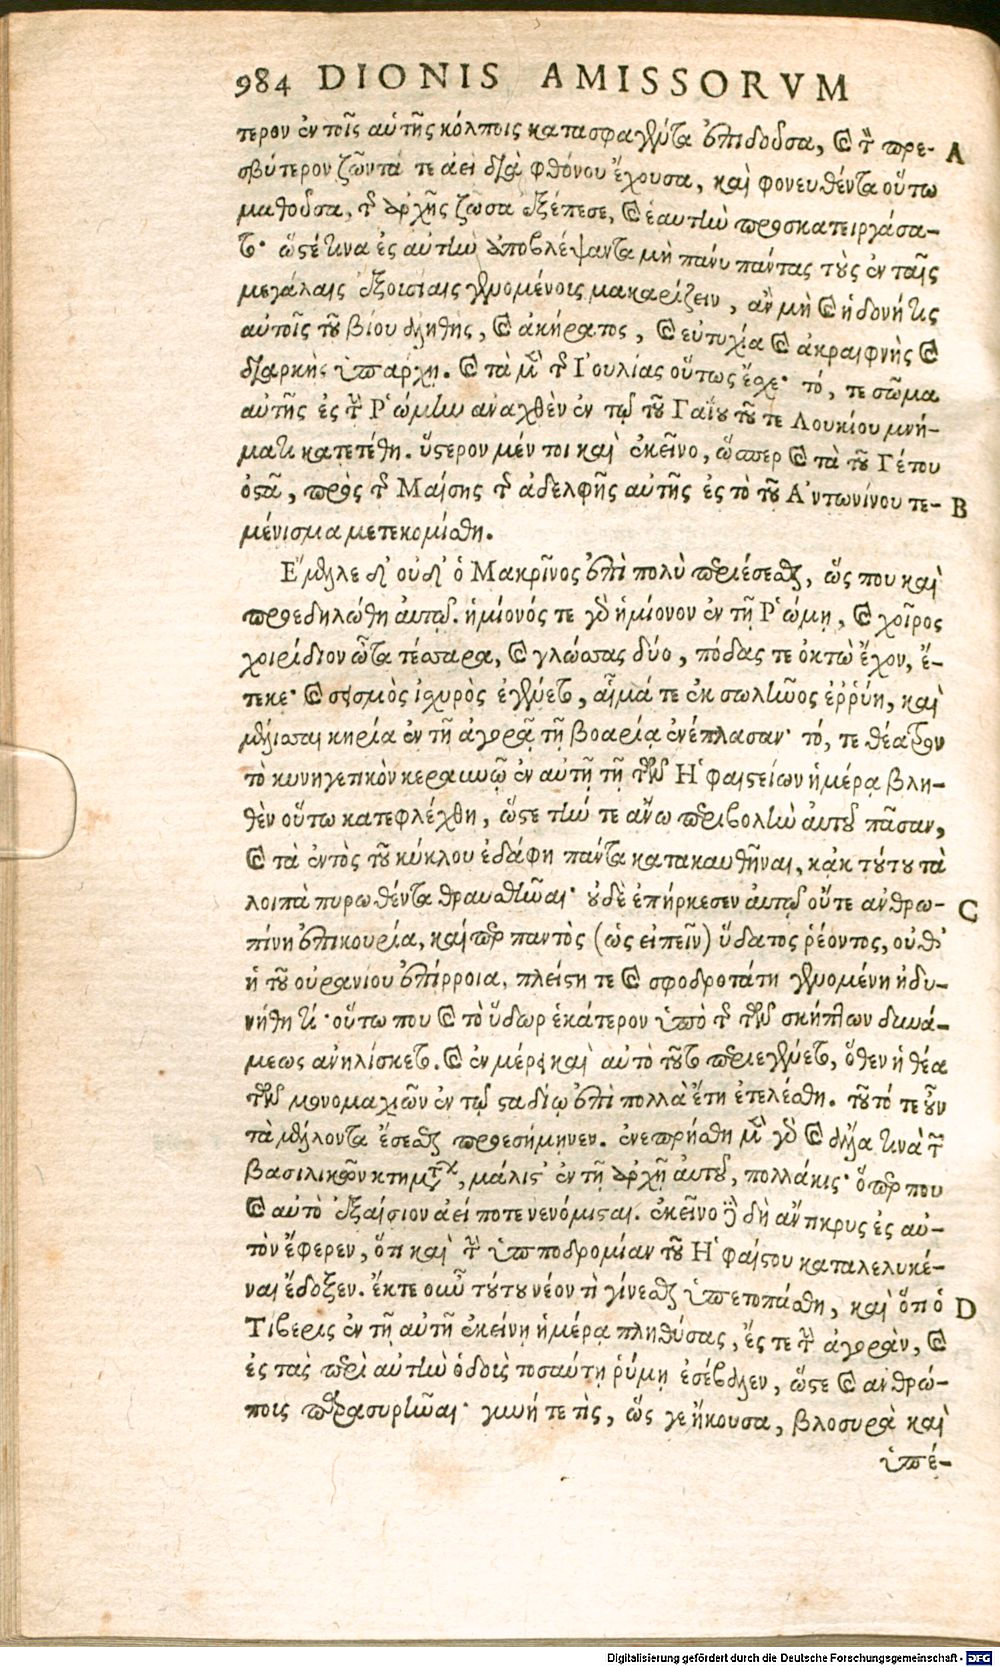 984 DIONIS AMISSORVM
τερον ἐν τοῖς αὑτῆς κόλποις κατασφαγέντα ἐπιδοῦσα, καὶ τὸν πρε- A
σβύτερον ζῶντά τε ἀεὶ διὰ φθόνου ἔχουσα, καὶ φονευθέντα οὕτω
μαθοῦσα, τῆς ἀρχῆς ζῶσα ἐξέπεσε, καὶ ἑαυτὴν προσκατειργάσα-
το· ὥστέ τινα ἐς αὐτὴν ἀποβλέψαντα μὴ πάνυ πάντας τοὺς ἐν ταῖς
μεγάλαις ἐξουσίαις γενομένοις μακαρίζειν, ἂν μὴ καὶ ἡδονή τις
αὐτοῖς τοῦ βίου ἀληθὴς, καὶ ἀκήρατος, καὶ εὐτυχία καὶ ἀκραιφνὴς καὶ
διαρκὴς ὑπάρχῃ. καὶ τὰ μὲν τῆς Ἰουλίας οὕτως ἔσχε· τό, τε σῶμα
αὐτῆς ἐς τὴν Ῥώμην ἀναχθὲν ἐν τῷ τοῦ Γαΐου τοῦ τε Λουκίου μνή-
ματι κατετέθη. ὕστερον μέν τοι καὶ ἐκεῖνο, ὥσπερ καὶ τὰ τοῦ Γέτου
ὀστᾶ, πρὸς τῆς Μαίσης τῆς ἀδελφῆς αὐτῆς ἐς τὸ τοῦ Ἀντωνίνου τε- B
μένισμα μετεκομίσθη.
Ἔμελλε δ' οὐδ' ὁ Μακρῖνος ἐπὶ πολὺ περιέσεσθαι, ὥς που καὶ
προεδηλώθη αὐτῷ. ἡμίονός τε γὰρ ἡμίονον ἐν τῇ Ῥώμῃ, καὶ χοῖρος
χοιρίδιον ὦτα τέσσαρα, καὶ γλώσσας δύο, πόδας τε ὀκτὼ ἔχον, ἔ-
τεκε· καὶ σεισμὸς ἰσχυρὸς ἐγένετο, αἷμά τε ἐκ σωλῆνος ἐῤῥύη, καὶ
μέλισσαι κηρία ἐν τῇ ἀγορᾷ τῇ βοαρίᾳ ἐνέπλασαν· τό, τε θέατρον
τὸ κυνηγετικὸν κεραυνῷ ἐν αὐτῇ τῇ τῶν Ἡφαιστείων ἡμέρᾳ βλη-
θὲν οὕτω κατεφλέχθη, ὥστε τήν τε ἄνω περιβολὴν αὐτοῦ πᾶσαν,
καὶ τὰ ἐντὸς τοῦ κύκλου ἐδάφη πάντα κατακαυθῆναι, κἀκ τούτου τὰ
λοιπὰ πυρωθέντα θραυσθῆναι· οὐδὲ ἐπήρκεσεν αὐτῷ οὔτε ἀνθρω- C
πίνη ἐπικουρία, καίπερ παντὸς (ὡς εἰπεῖν) ὕδατος ῥέοντος, οὐθ'
ἡ τοῦ οὐρανίου ἐπίρροια, πλείστη τε καὶ σφοδροτάτη γενομένη ἠδυ-
νήθη τι· οὕτω που καὶ τὸ ὕδωρ ἑκάτερον ὑπὸ τῆς τῶν σκηπτῶν δυνά-
μεως ἀνηλίσκετο. καὶ ἐν μέρει καὶ αὐτὸ τοῦτο περιεγένετο, ὅθεν ἡ θέα
τῶν μονομαχιῶν ἐν τῷ σταδίῳ ἐπὶ πολλὰ ἔτη ἐτελέσθη. τοῦτό τε οὖν
τὰ μέλλοντα ἔσεσθαι προεσήμηνεν. ἐνεπρήσθη μὲν γὰρ καὶ ἄλλα τινὰ τῶν
βασιλικῶν κτημάτων, μάλιστ' ἐν τῇ ἀρχῇ αὐτοῦ, πολλάκις· ὅπερ που
καὶ αὐτὸ ἐξαίσιον ἀεί ποτε νενόμισται. ἐκεῖνο δὲ δὴ ἄντικρυς ἐς αὐ-
τὸν ἔφερεν, ὅτι καὶ τὴν ἱπποδρομίαν τοῦ Ἡφαίστου καταλελυκέ-
ναι ἔδοξεν. ἔκ τε οὖν τούτου νέον τὶ γίνεσθαι ὑπετοπάσθη, καὶ ὅτι ὁ D
Τίβερις ἐν τῇ αὐτῇ ἐκείνῃ ἡμέρᾳ πληθύσας, ἔς τε τὴν ἀγορὰν, καὶ
ἐς τὰς περὶ αὐτὴν ὁδοὺς τοσαύτῃ ῥύμῃ ἐσέβαλεν, ὥστε καὶ ἀνθρώ-
ποις παρασυρῆναι· γυνή τε τὶς, ὥς γε ἤκουσα, βλοσυρὰ καὶ
ὑπέ-
Digitalisierung gefördert durch die Deutsche Forschungsgemeinschaft - DFG